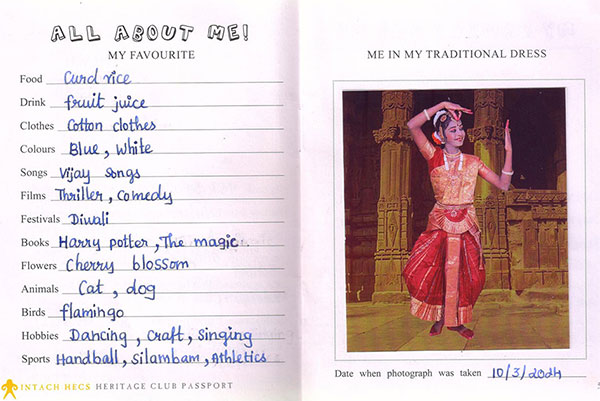 ALL ABOUT ME!
MY FAVOURITE
Food Curd rice
Drink fruit juice
Clothes Cotton clothes
Colours Blue, White
Songs Vijay songs
Films Thriller, Comedy
Festivals Diwali
Books Harry potter, The magic
Flowers Cherry blossom
Animals Cat, dog
Birds flamingo
Hobbies Dancing, Craft, Singing
Sports Handball, Silambam, Athletics
INTACH HECS HERITAGE CLUB PASSPORT
ME IN MY TRADITIONAL DRESS
Date when photograph was taken 10/3/2024